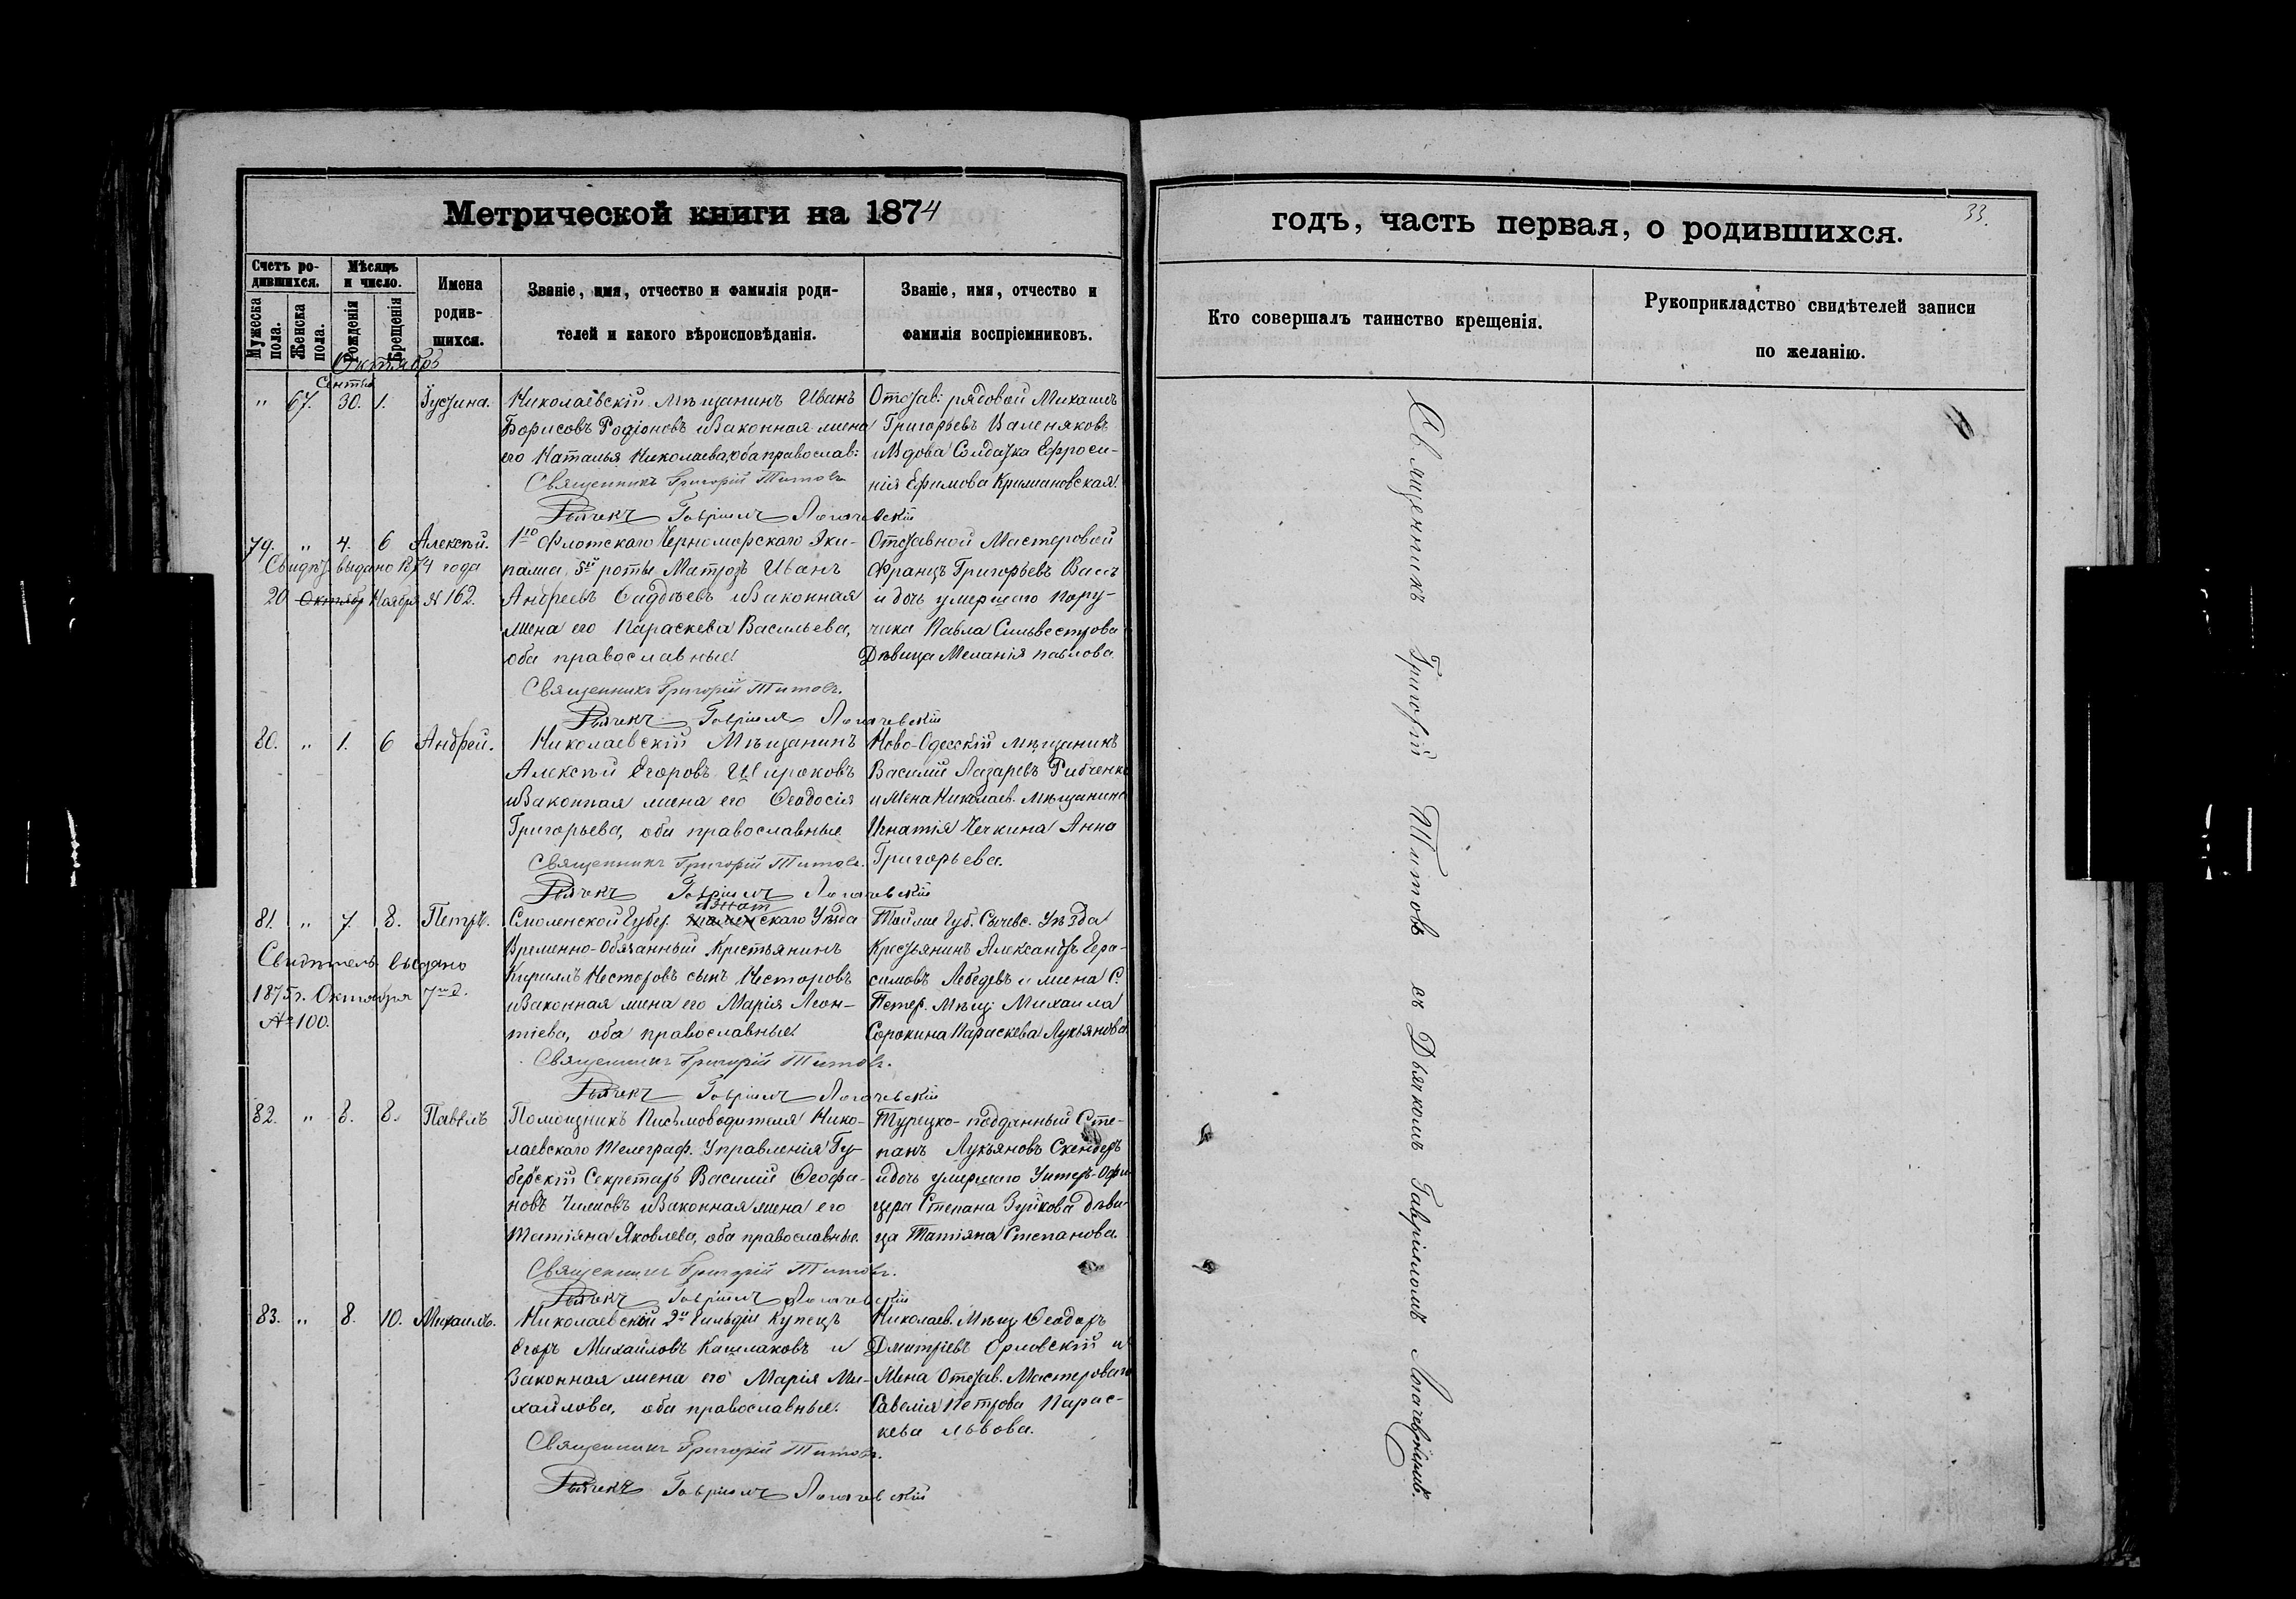 Метрической книги на 1874
Счетъ ро-
дившихся.
Мужеска пола.
Женска пола.
Мѣсяцъ
и число.
Рожденія
Крещенія
Имена
родив-
шихся.
Званіе, имя, отчество и фамилія роди-
телей и какого вѣроисповѣданія.
Званіе, имя, отчество и
фамилія воспріемниковъ.
Октябрь
" 67. 30. 1. Іустина.
Николаевскій Мѣщанинъ Иванъ
Борисовъ Родіоновъ и Законная жена
его Наталья Николаева, оба православ:
Священникъ Григорій Титовъ
Дьячекъ Гавріилъ Логачевскій
Отстав: рядовой Михаилъ
Григорьевъ Валеняковъ
и Вдова Солдатка Ефроси-
нія Ефимова Кримановская.
79. " 4. 6 Алексѣй.
Свидѣт. выдано 1874 года
20 Октябр Ноября № 162.
1го Флотскаго Черноморскаго Эки-
пажа, 5й роты Матрозъ Иванъ
Андреевъ Садѣевъ и Законная
жена его Параскева Васильева,
оба православные.
Священникъ Григорій Титовъ.
Дьячекъ Гавріилъ Логачевскій
Отставной Мастеровой
Францъ Григорьевъ Вассъ
и дочь умершаго Пору-
чика Павла Сильвестрова
Дѣвица Меланія павлова.
80. " 1. 6 Андрей.
Николаевскій Мѣщанинъ
Алексѣй Егоровъ Широковъ
и Законная жена его Феодосія
Григорьева, оба православные
Священникъ Григорій Титовъ.
Дьячекъ Гавріилъ Логачевскій
Ново-Одесскій мѣщанинъ
Василій Лазаревъ Рибченко
и Жена Николаев. Мѣщанина
Игнатія Чечкина Анна
Григорьева.
81. " 7. 8. Петръ.
Свидѣтель. выдано
1875 г. Октября 7го д.
№ 100.
Смоленской Губер. скаго Уѣзда
Временно-Обязанный Крестьянинъ
Кириллъ Несторовъ сынъ Несторовъ
и Законная жена его Марія Леон-
тіева, оба православные.
Священникъ Григорій Титовъ.
Дьячекъ Гавріилъ Логачевскій
Тойже Губ. Сычевс. Уѣзда
Крестьянинъ Александръ Гера-
симовъ Лебедевъ и жена С.
Петер. Мѣщ. Михаила
Сорокина Параскева Лукьянова.
82. " 8. 8. Павелъ
Помощникъ Письмоводителя Нико-
лаевскаго Телеграф. Управленія Гу-
берскій Секретарь Василій Феофа-
новъ Чижовъ и Законная жена его
Татіяна Яковлева, оба православные.
Священникъ Григорій Титовъ.
Дьячекъ Гавріилъ Логачевскій
Турецко-подданный Сте-
панъ Лукьяновъ Скендеръ
и дочь умершаго Унтеръ-Офи-
цера Степана Зуйкова дѣви-
ца Татіяна Степанова.
83. " 8. 10. Михаилъ.
Николаевскій 2й Гильдіи Купецъ
Егоръ Михайловъ Кашлаковъ и
Законная жена его Марія Ми-
хайлова, оба православные.
Священникъ Григорій Титовъ.
Дьячекъ Гавріилъ Логачевскій
Николаев. Мѣщ. Феодоръ
Дмитріевъ Орловскій и
Жена Отстав. Мастероваго
Савелія Петрова Парас-
кева Львова.
33.
годъ, часть первая, о родившихся.
Кто совершалъ таинство крещенія.
Рукоприкладство свидѣтелей записи
по желанію.
Священникъ Григорій Титовъ съ Дьячкомъ Гавріиломъ Логачевскимъ.